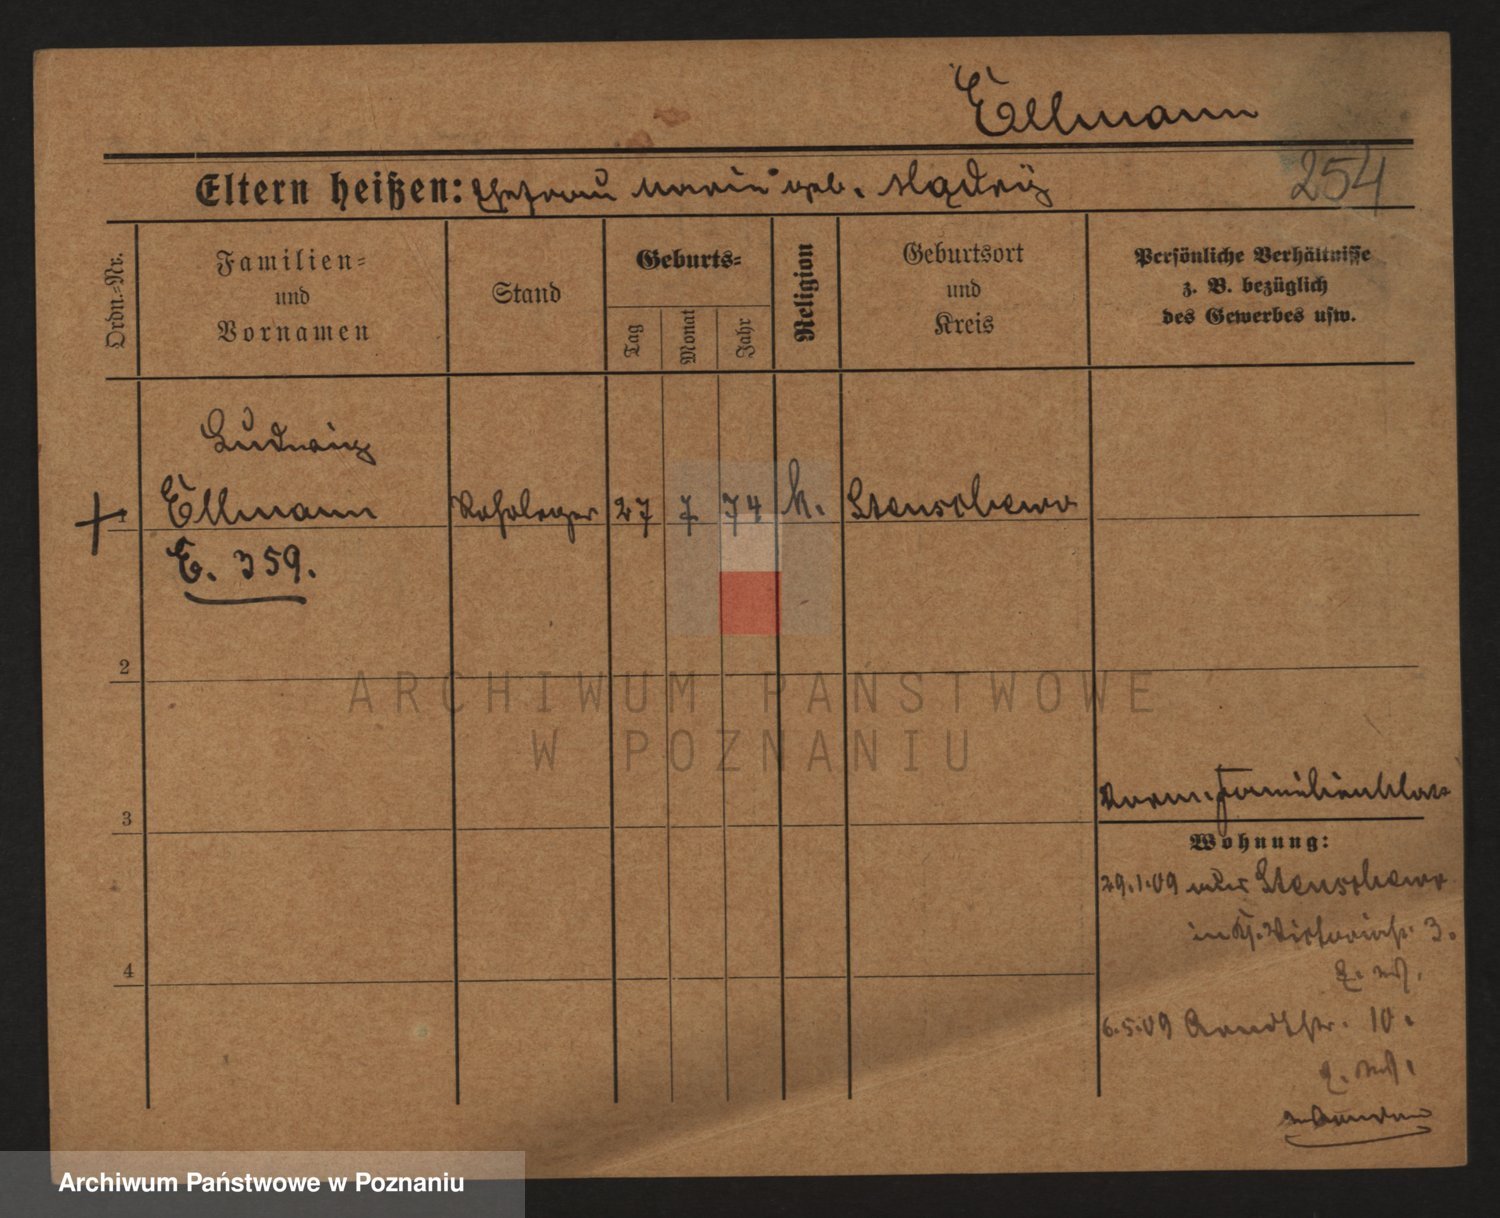 Ellmann
254
Eltern heißen: Ehefrau Marie geb.
Ordn.-Nr.
Familien-
und
Vornamen
Stand
Geburts-
Tag
Monat
Jahr
Religion
Geburtsort
und
Kreis
Persönliche Verhältnisse
z. B. bezüglich
des Gewerbes usw.
Ludwig
1 Ellmann Rohrleger 27 7 74 k. Stenschewo
E. 359.
2
ARCHIWUM PAŃSTWOWE
W POZNANIU
3
Wohnung:
29.1.09 Stenschewo
in 3.
4
6.5.09 10.
Archiwum Państwowe w Poznaniu